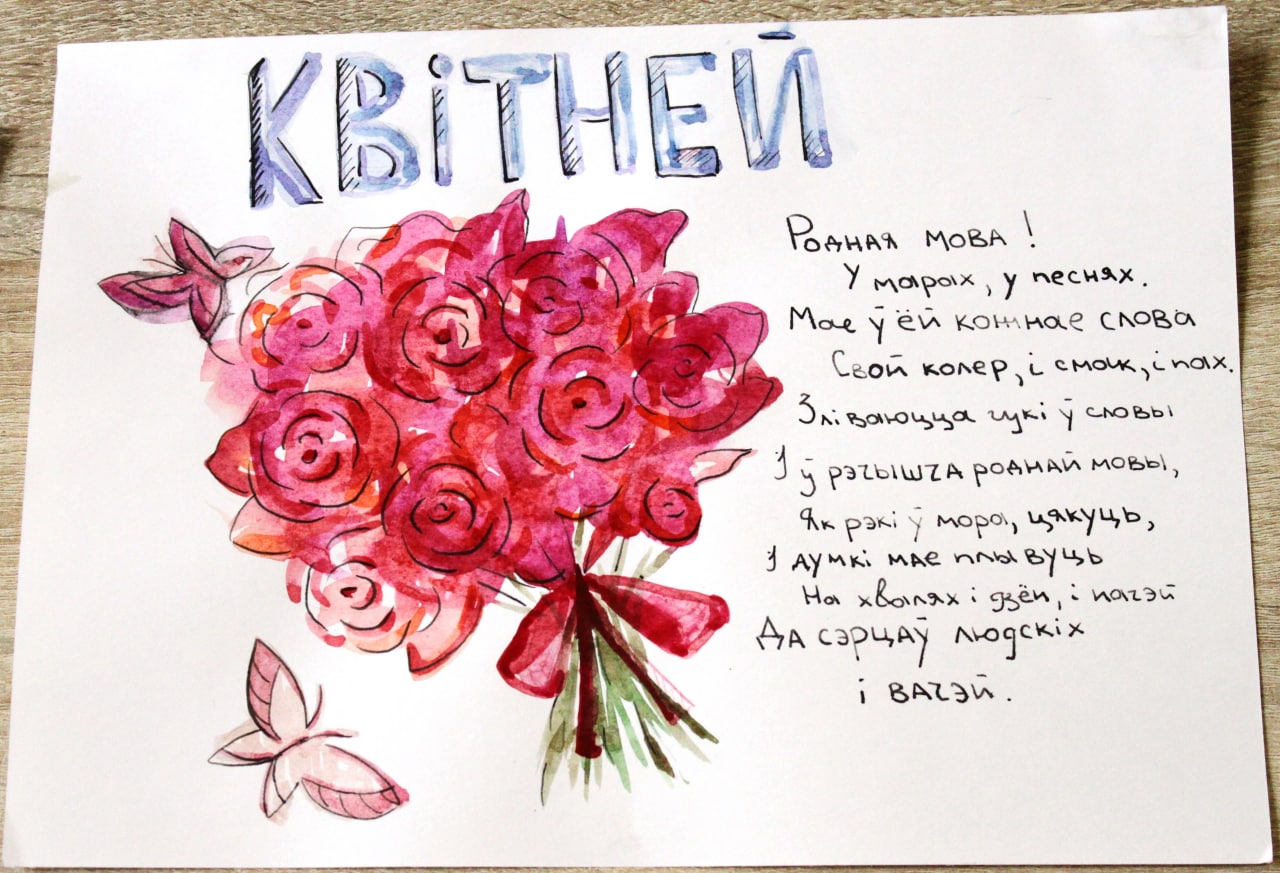 КВіТНЕЙ
Родная мова!
У марах, у песнях.
Мае ў ёй кожнае слова
Свой колер, і смак, і пах.
Зліваюцца гукі ў словы
І ў рэчышча роднай мовы,
Як рэкі ў моры, цякуць,
І думкі мае плывуць
На хвалях і дзён, і начэй
Да сэрцаў людскіх
і вачэй.